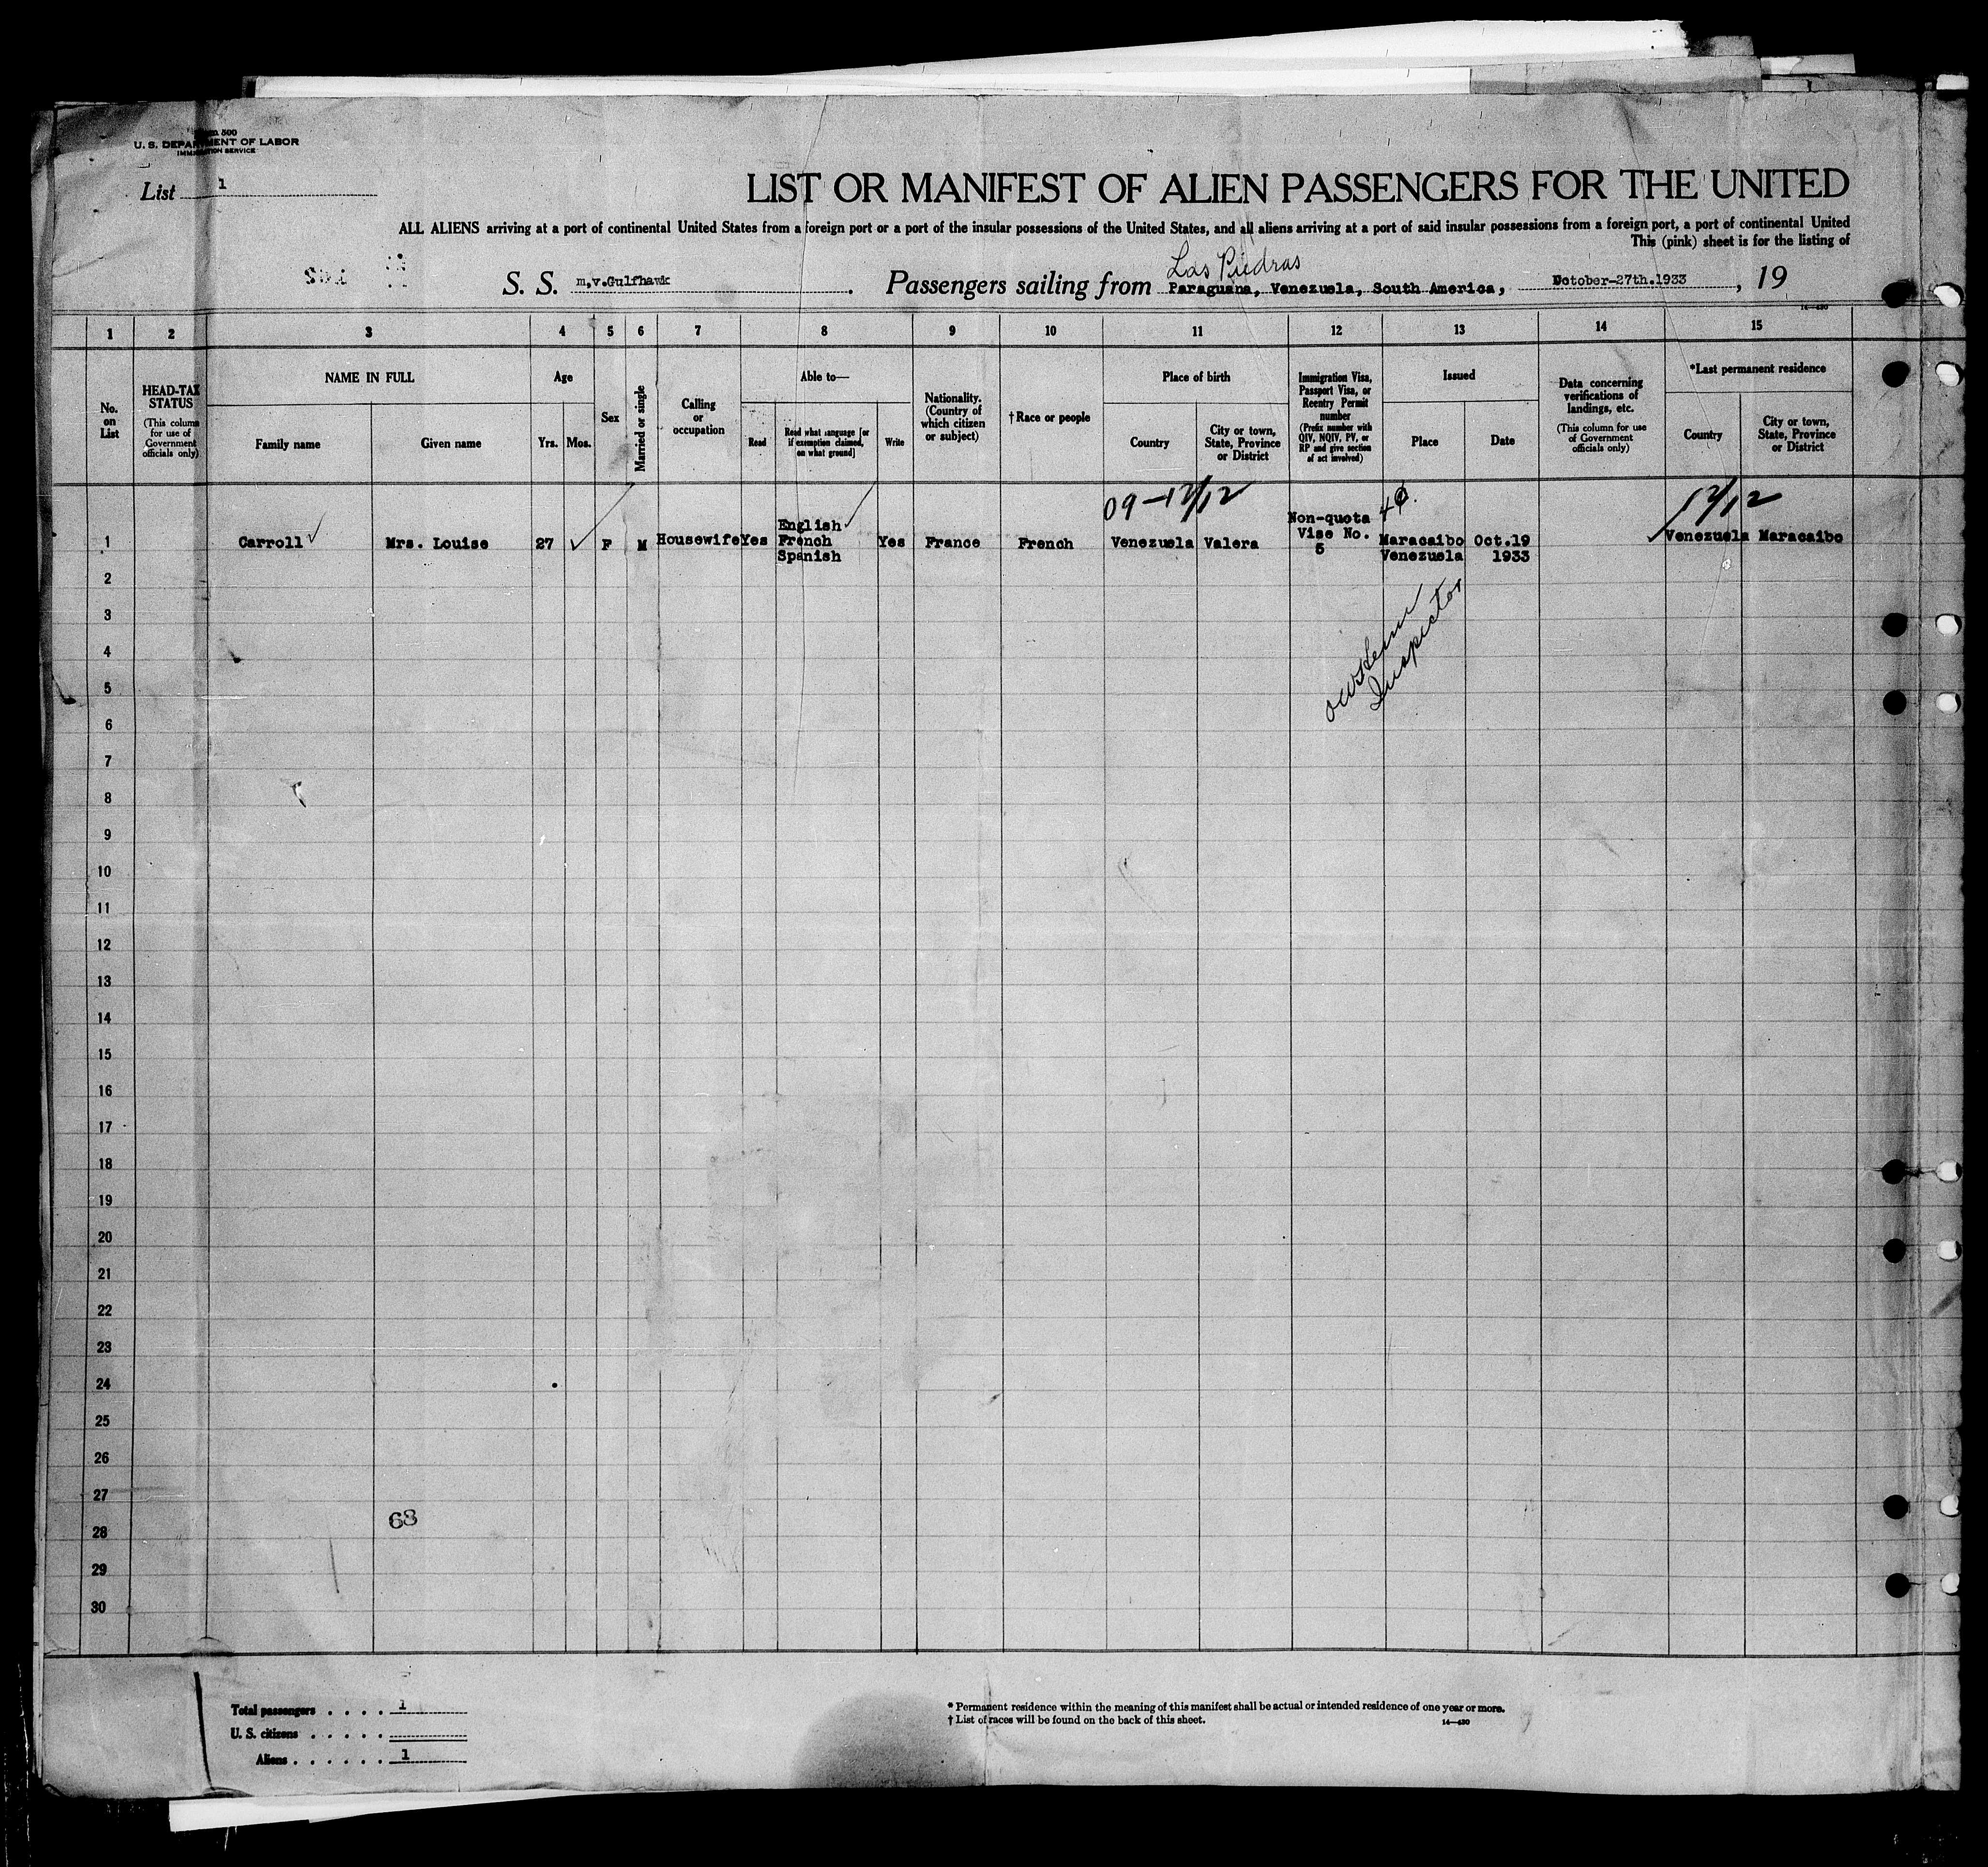 Form 500
U. S. DEPARTMENT OF LABOR
IMMIGRATION SERVICE
List 1
LIST OR MANIFEST OF ALIEN PASSENGERS FOR THE UNITED
ALL ALIENS arriving at a port of continental United States from a foreign port or a port of the insular possessions of the United States, and all aliens arriving at a port of said insular possessions from a foreign port, a port of continental United
This (pink) sheet is for the listing of
Las Piedras
S. S. m.v.Gulfhawk . Passengers sailing from Paraguana, Venezuela, South America, October-27th.1933 , 19
14—430
1 2 3 4 5 6 7 8 9 10 11 12 13 14 15
No. on List
HEAD-TAX STATUS
(This column for use of Government officials only)
NAME IN FULL
Family name
Given name
Age
Yrs.
Mos.
Sex
Married or single
Calling or occupation
Able to—
Read
Read what language [or if exemption claimed, on what ground]
Write
Nationality. (Country of which citizen or subject)
†Race or people
Place of birth
Country
City or town, State, Province or District
Immigration Visa, Passport Visa, or Reentry Permit number
(Prefix number with QIV, NQIV, PV, or RP and give section of act involved)
Issued
Place
Date
Data concerning verifications of landings, etc.
(This column for use of Government officials only)
*Last permanent residence
Country
City or town, State, Province or District
09-12/12
12/12
1 Carroll Mrs. Louise 27 F M Housewife Yes English French Spanish Yes France French Venezuela Valera Non-quota Vise No. 5 Maracaibo Venezuela Oct.19 1933 Venezuela Maracaibo
2
3
Inspector
4
5
6
7
8
9
10
11
12
13
14
15
16
17
18
19
20
21
22
23
24
25
26
27
68
28
29
30
Total passengers . . . . 1
U. S. citizens . . . . .
Aliens . . . . . . 1
* Permanent residence within the meaning of this manifest shall be actual or intended residence of one year or more.
† List of races will be found on the back of this sheet.
14—430